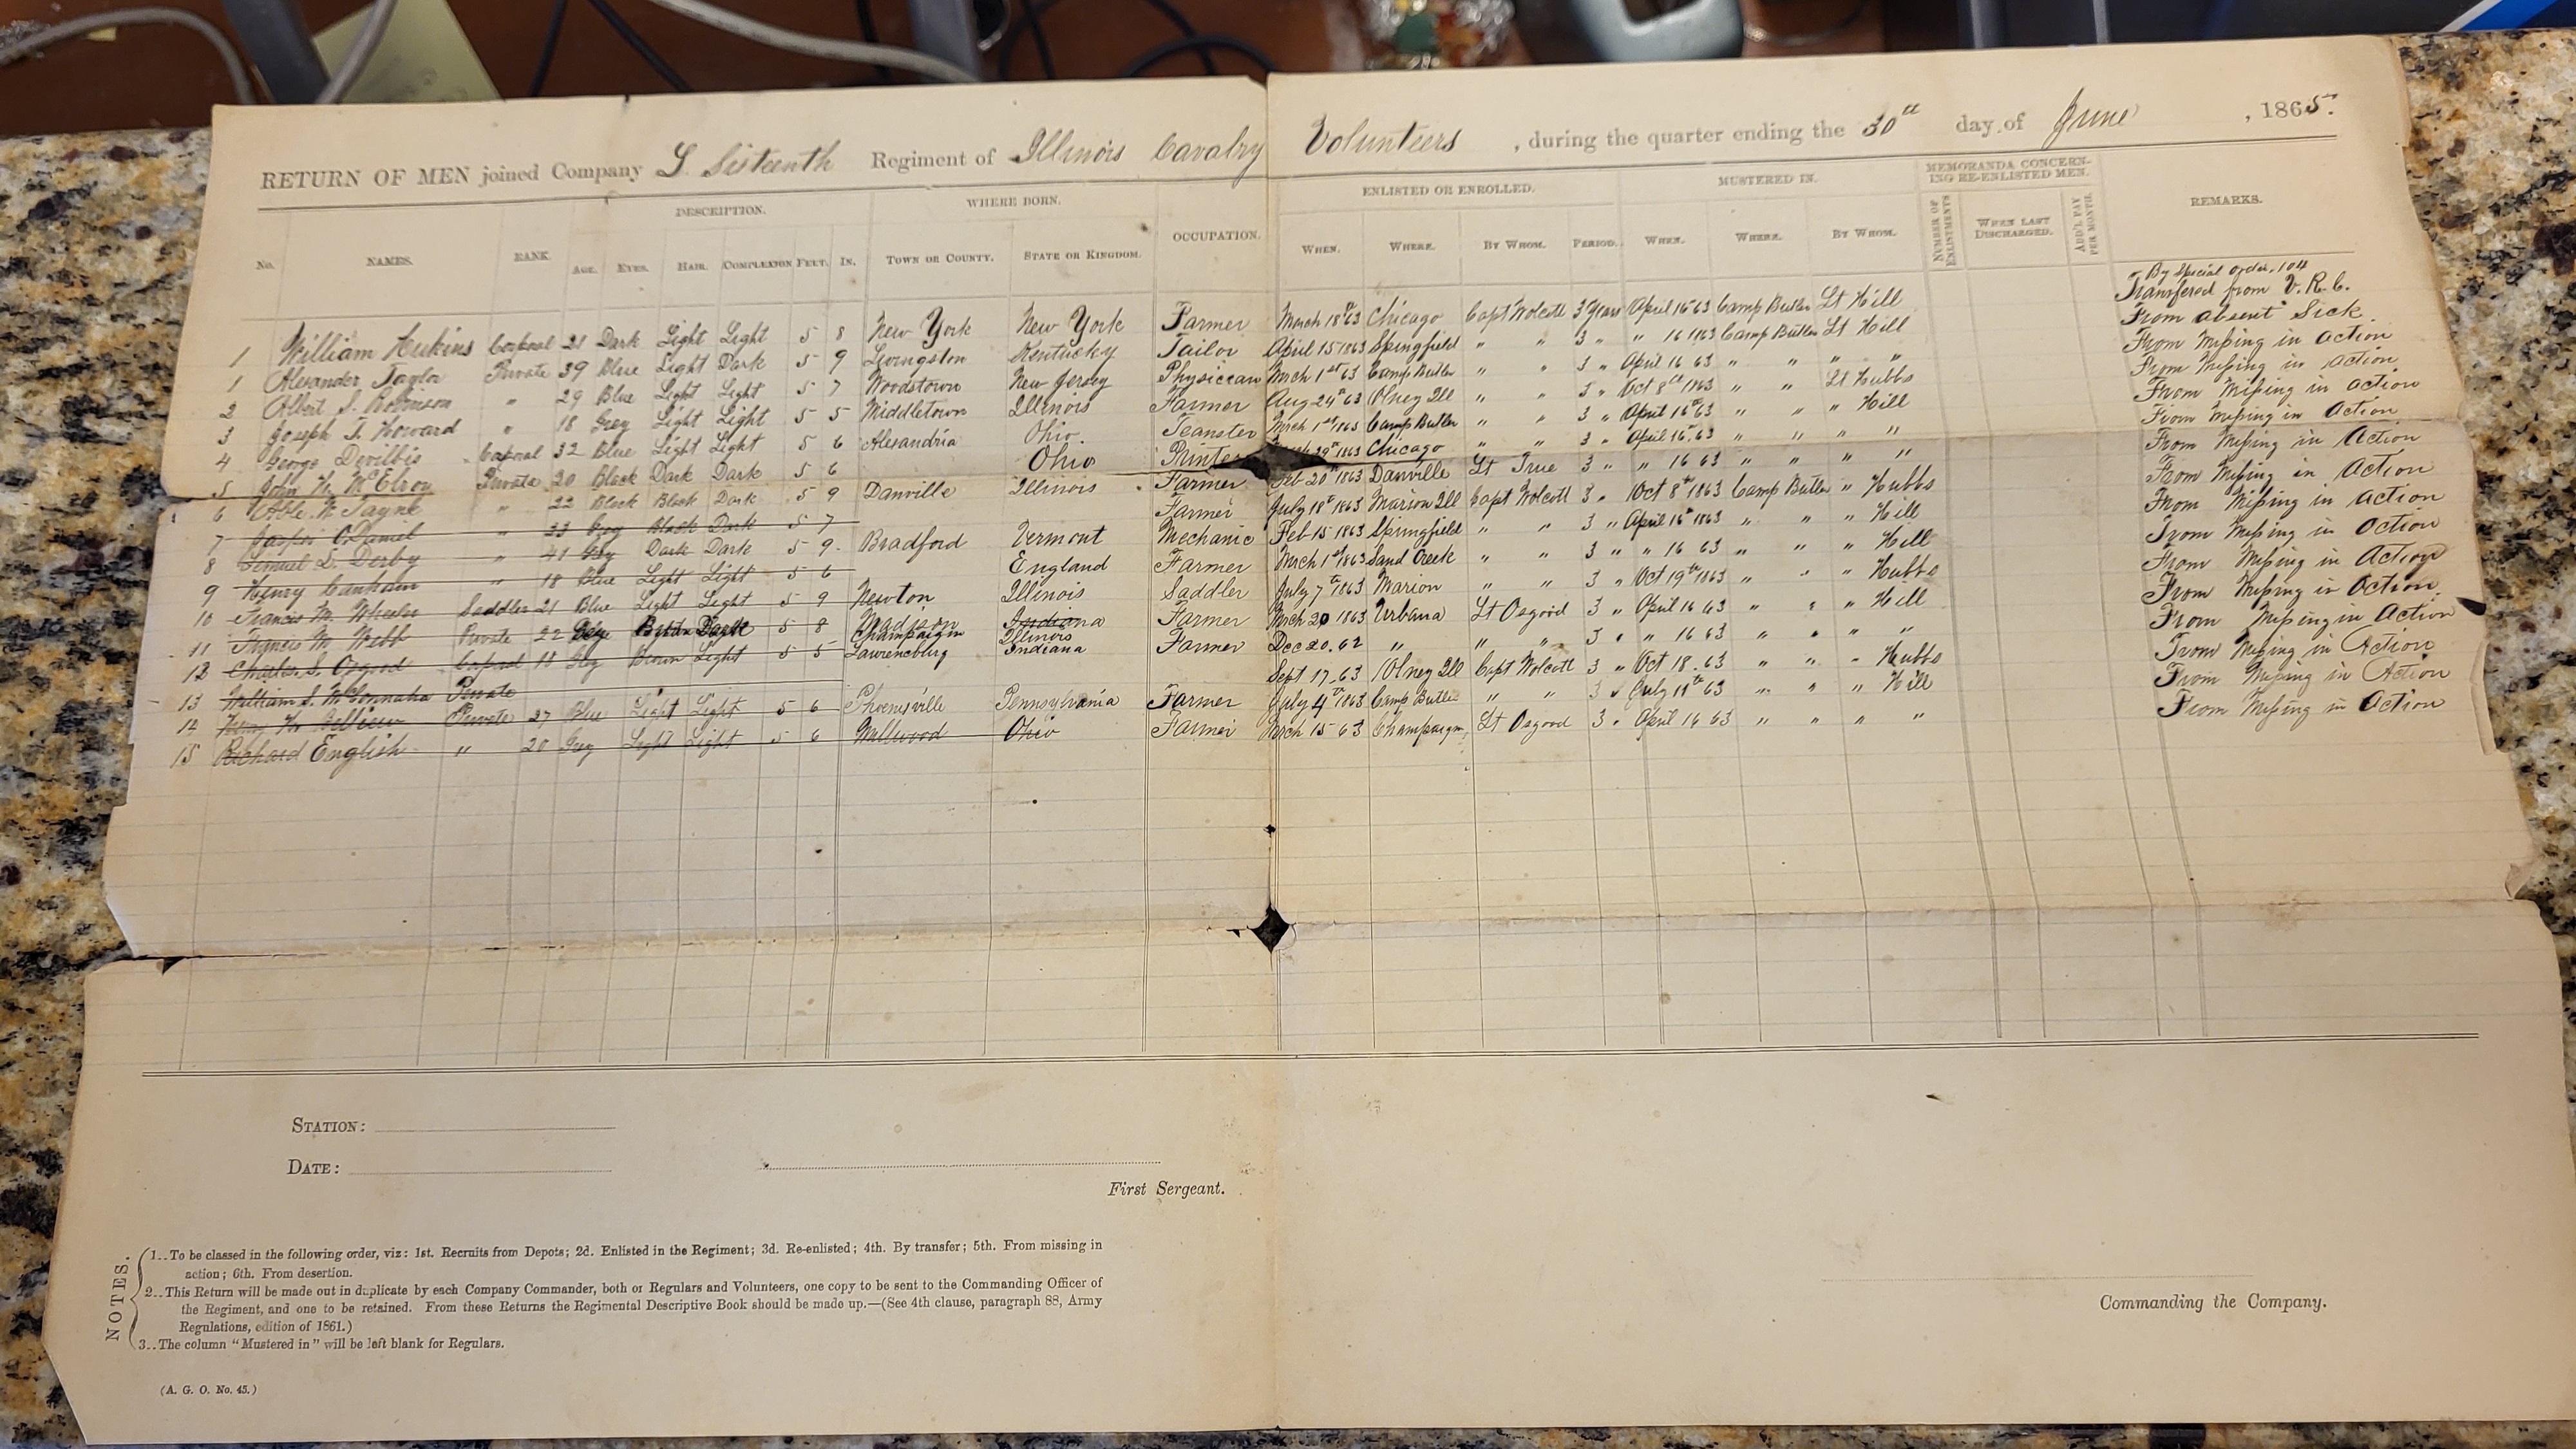 RETURN OF MEN joined Company L. Sixteenth Regiment of Illinois Cavalry Volunteers, during the quarter ending the 30th day of June, 1865.
DESCRIPTION. WHERE BORN. ENLISTED OR ENROLLED. MUSTERED IN. MEMORANDA CONCERNING RE-ENLISTED MEN.
No. NAMES. RANK. AGE. EYES. HAIR. COMPLEXION FEET. IN. TOWN OR COUNTY. STATE OR KINGDOM. OCCUPATION. WHEN. WHERE. BY WHOM. PERIOD. WHEN. WHERE. BY WHOM. NUMBER OF ENLISTMENTS WHEN LAST DISCHARGED. ADD'L PAY PER MONTH. REMARKS.
By Special order, 104
1 William Corporal 21 Dark Light Light 5 8 New York New York Farmer March 18th 63 Chicago Capt Wolcott 3 Years April 16 63 Camp Butler Lt Hill Transfered from V. R. C.
1 Alexander Taylor Private 39 Blue Light Dark 5 9 Livingston Kentucky Tailor April 15 1863 Springfield " " 3 " " 16 1863 Camp Butler Lt Hill From absent Sick.
2 Albert S. Robinson " 29 Blue Light Light 5 7 Woodstown New Jersey Physician March 1st 63 Camp Butler " " 3 " April 16 63 " " " " From Missing in action
3 Joseph T. Howard " 18 Grey Light Light 5 5 Middletown Illinois Farmer Aug 24th 63 Olney Ill " " 3 " Oct 8th 1863 " " Lt Hubbs From Missing in action
4 George Devilbis Corporal 32 Blue Light Light 5 6 Alexandria Ohio. Teamster March 1st 1863 Camp Butler " " 3 " April 16th 63 " " " Hill From Missing in action
5 John H. McElroy Private 20 Black Dark Dark 5 6 Ohio Printer 29th 1863 Chicago " " 3 " April 16th 63 " " " " From Missing in Action
6 Able W. " 22 Black Black Dark 5 9 Danville Illinois Farmer Feb 20th 1863 Danville Lt True 3 " " 16 63 " " " " From Missing in Action
7 O.Daniel " 33 Grey Black Dark 5 7 Farmer July 18th 1863 Marion Ill Capt Wolcott 3 " Oct 8th 1863 Camp Butler " Hubbs From Missing in Action
8 Lemuel D. Derby " 41 Grey Dark Dark 5 9 Bradford Vermont Mechanic Feb 15 1863 Springfield " " 3 " April 16th 1863 " " " Hill From Missing in Action
9 Henry Canham " 18 Blue Light Light 5 6 England Farmer March 1st 1863 Sand Creek " " 3 " " 16 63 " " " Hill From Missing in Action
10 Francis M. Wheeler Saddler 21 Blue Light Light 5 9 Newton Illinois Saddler July 7th 1863 Marion " " 3 " Oct 19th 1863 " " " Hubbs From Missing in Action
11 Francis M. Webb Private 22 Dark 5 8 Madison Indiana Farmer March 20 1863 Urbana Lt Osgood 3 " April 16 63 " " " Hill From Missing in Action
Champaign Illinois
12 Charles S. Osgood Corporal 18 Grey Brown Light 5 5 Lawrenceburg Indiana Farmer Dec 20. 62 " " " 3 " " 16 63 " " " " From Missing in Action
13 William S. McConnaha Private Sept 17. 63 Olney Ill Capt Wolcott 3 " Oct 18. 63 " " " Hubbs From Missing in Action
14 Henry Private 27 Blue Light Light 5 6 Phoenixville Pennsylvania Farmer July 4th 1863 Camp Butler " " 3 " July 11th 63 " " " Hill From Missing in Action
15 Richard English " 20 Grey Light Light 5 6 Ohio Farmer March 15 63 Champaign Lt Osgood 3 " April 16 63 " " " " From Missing in Action
STATION:
DATE:
First Sergeant.
Commanding the Company.
NOTES.
1..To be classed in the following order, viz: 1st. Recruits from Depots; 2d. Enlisted in the Regiment; 3d. Re-enlisted; 4th. By transfer; 5th. From missing in
action; 6th. From desertion.
2..This Return will be made out in duplicate by each Company Commander, both or Regulars and Volunteers, one copy to be sent to the Commanding Officer of
the Regiment, and one to be retained. From these Returns the Regimental Descriptive Book should be made up.—(See 4th clause, paragraph 88, Army
Regulations, edition of 1861.)
3..The column "Mustered in" will be left blank for Regulars.
(A. G. O. No. 45.)